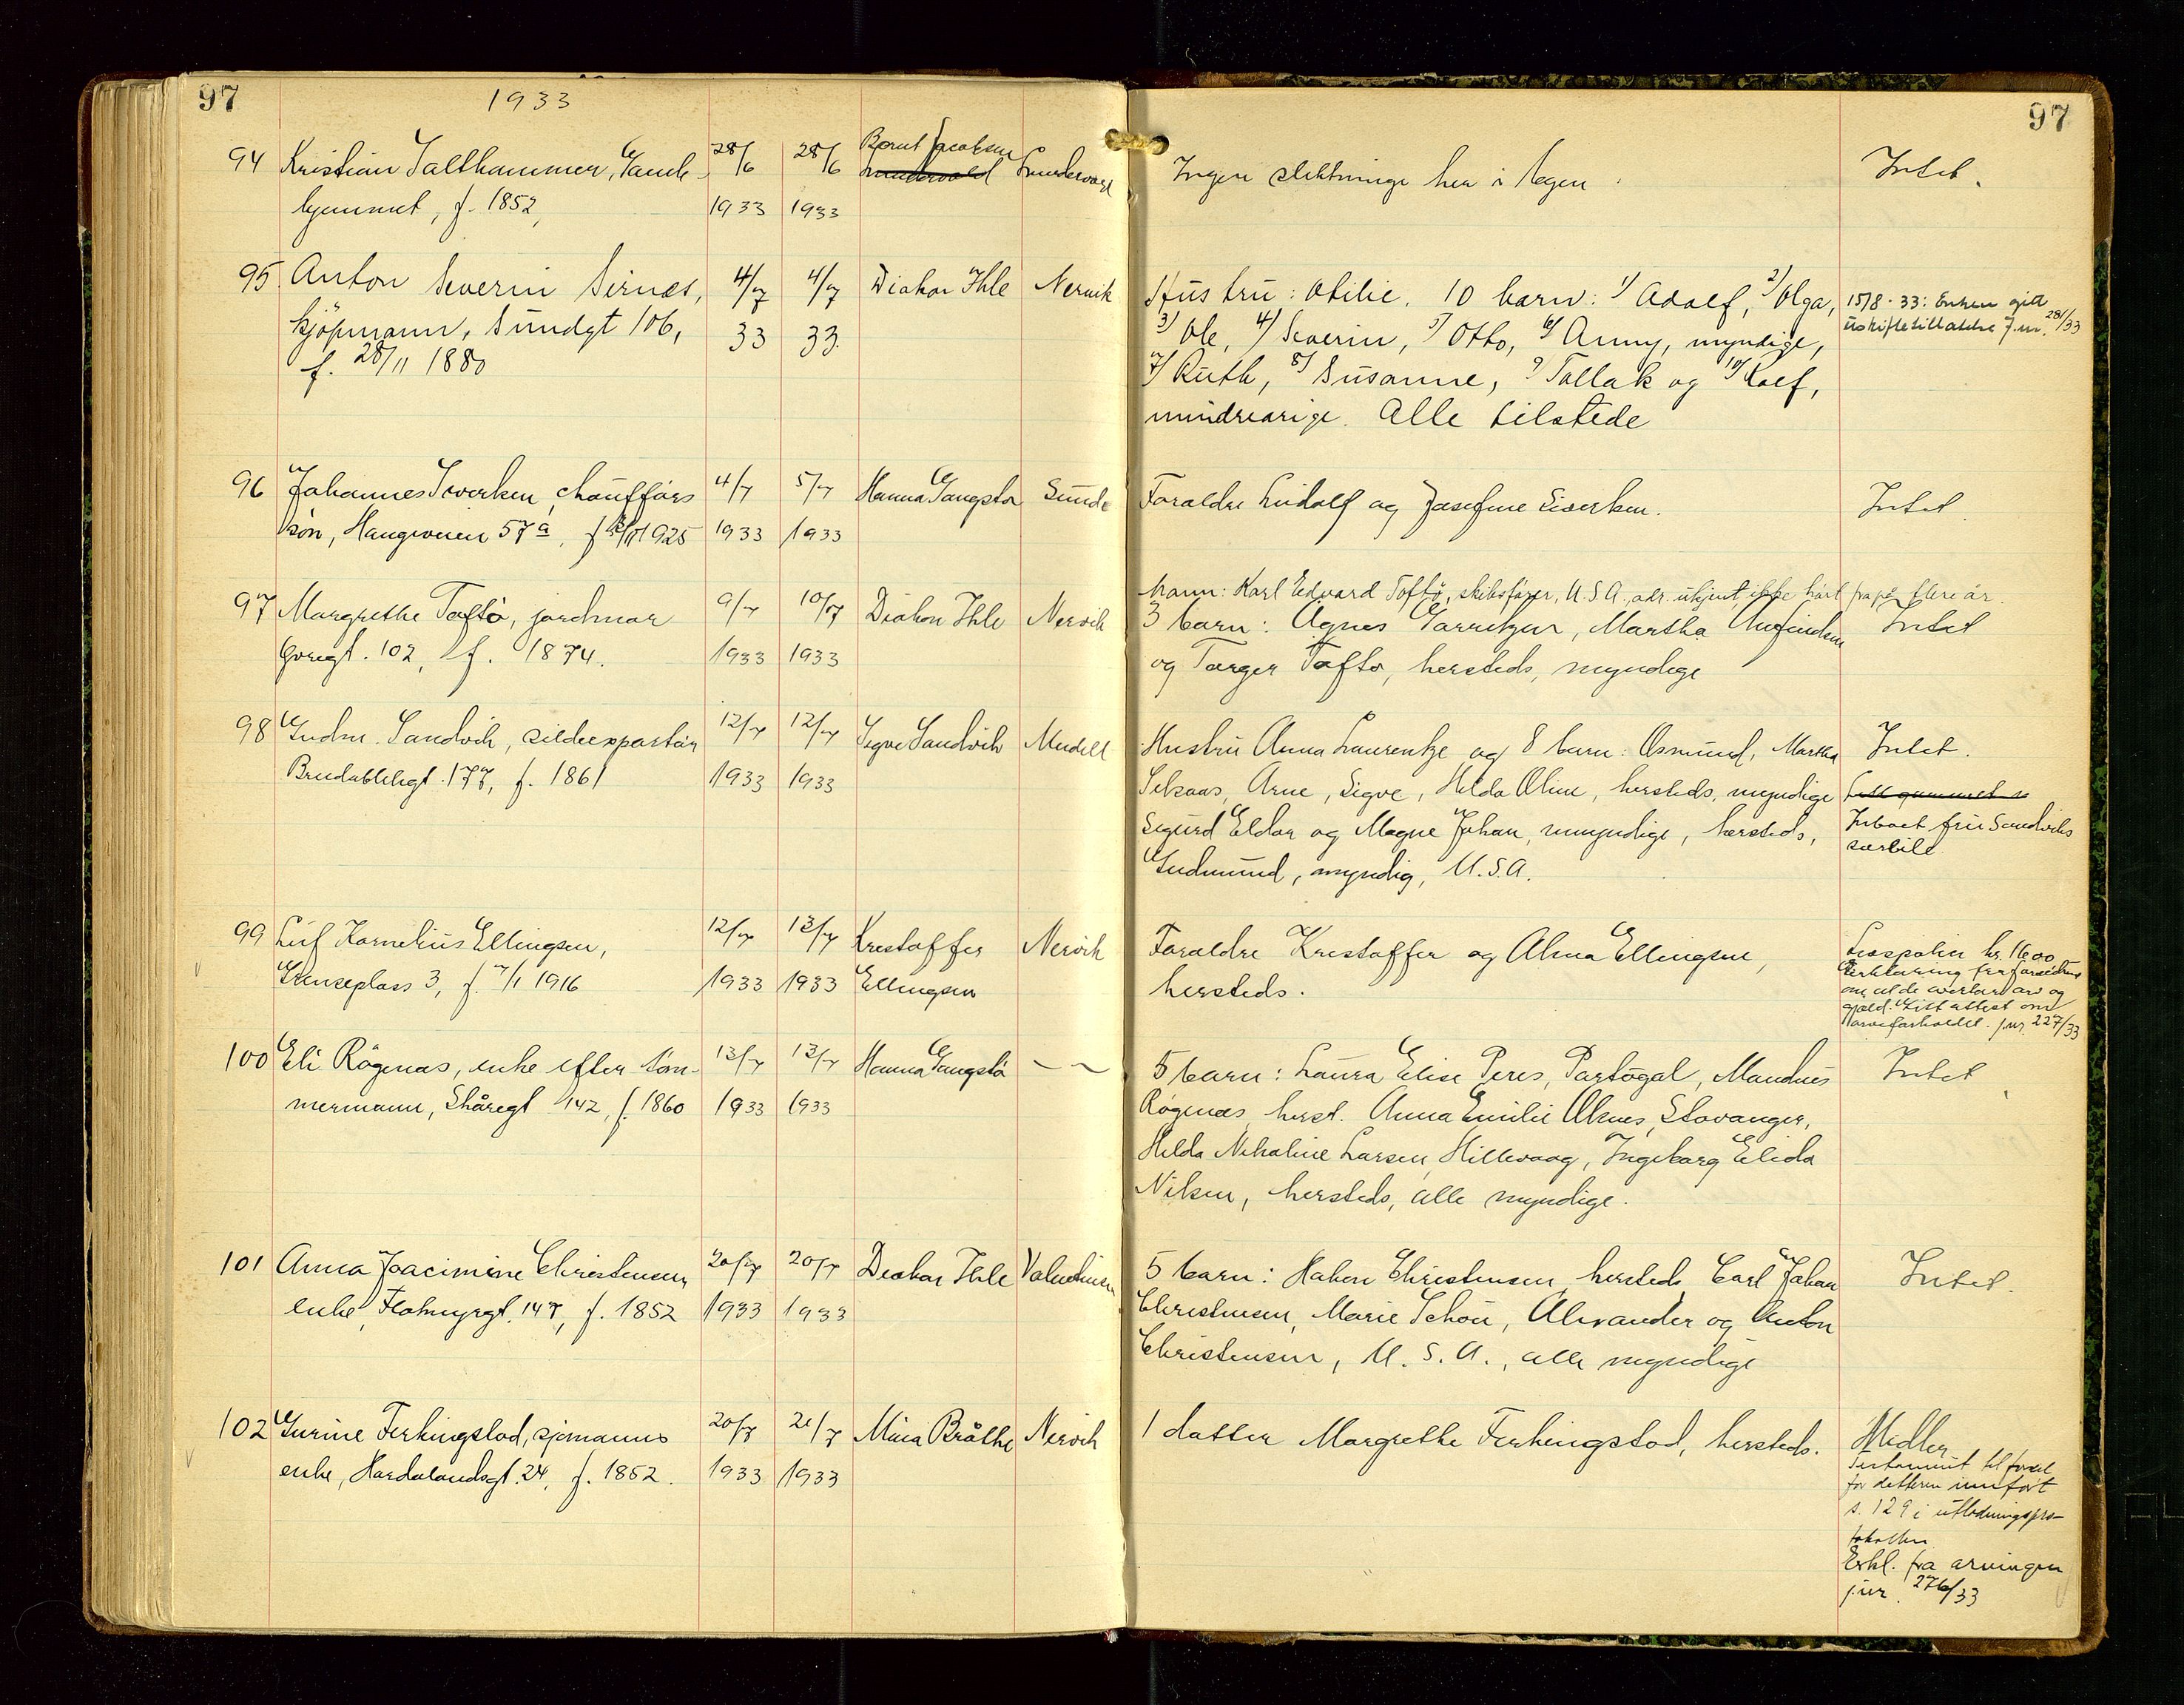 97
1933
97
94 Kristian Salthammer, Gamle- 28/6 28/6 Bernt Jacobsen Ingen slektninge her i byen. Intet.
hjemmet, f. 1852, 1933 1933
95 Anton Severin Sirnes, 4/7 4/7 Diakon Ihle Nervik Hustru: Otilie. 10 barn: 1) Adolf, 2) Olga, 15/8-33: Enken gitt
kjöpmann, Sundgt 106, 33 33. 3) Ole, 4) Severin, 5) Otto, 6) Anny, myndige, uskiftetillatelse J.nr. 281/33
f. 28/11 1880 7) Ruth, 8) Susanne, 9) Tollak og 10) Rolf,
mindreårige. Alle tilstede
96 Johannes Siverksen, chaufførs 4/7 5/7 Hanna Gangstø Sunde Foreldre Ludolf og Josefine Siverksen. Intet.
sön, Haugeveien 57a, f. 1925 1933 1933
Mann: Karl Edvard Toftö, skibsfører, U.S.A., adr. ukjent, ikke hört fra på flere år.
97 Margrethe Toftö, jordmor 9/7 10/7 Diakon Ihle Nervik 3 barn: Agnes Garretzen, Martha Anfindsen Intet
Övregt. 102, f. 1874. 1933 1933 og Torger Toftö, hersteds, myndige
98 Gudm. Sandvik, sildeexportör 12/7 12/7 Sigve Sandvik Meddelt Hustru Anna Laurentze og 8 barn: Osmund, Martha Intet.
Breidablikgt. 177, f. 1861 1933 1933 Selsaas, Arne, Sigve, Hilda Oline, hersteds, myndige
Sigurd Eldar og Magne Johan, umyndige, hersteds, Inboet fru Sandviks
Gudmund, myndig, U.S.A. særeie
99 Leif Kornelius Ellingsen, 12/7 13/7 Kristoffer Nervik Foreldre Kristoffer og Alma Ellingsen, Livspolise kr. 1600
Grenseplass 3, f. 7/1 1916 1933 1933 Ellingsen hersteds. Erklæring fra foreldrene
om at de overtar arv og
gjæld. Gitt attest om
arveforholdet. j.nr. 227/33
100 Eli Rögenæs, enke efter töm- 13/7 13/7 Hanna Gangstö — 5 barn: Laura Elise Peres, Portugal, Mandius Intet
mermann, Skåregt 142, f. 1860 1933 1933 Rögenæs, herst. Anna Emilie Alsnes, Stavanger,
Hilda Nikoline Larsen, Hillevaag, Ingeborg Elida
Nilsen, hersteds, alle myndige.
101 Anna Joacimine Christensen, 20/7 20/7 Diakon Ihle Valentinsen 5 barn: Hakon Christensen, hersteds, Carl Johan Intet.
enke, Flotmyrgt. 147, f. 1852 1933 1933 Christensen, Marie Schou, Alexander og Anton
Christensen, U.S.A., alle myndige
102 Gurine Ferkingstad, sjömanns 20/7 21/7 Mina Bråthe Nervik 1 datter Margrethe Ferkingstad, hersteds. Midler
enke, Hordalandsgt. 24, f. 1852. 1933 1933 Testament til fordel
for datteren innfört
s. 129 i utlodningspro-
tokollen
Erkl. fra arvingen
jnr. 276/33